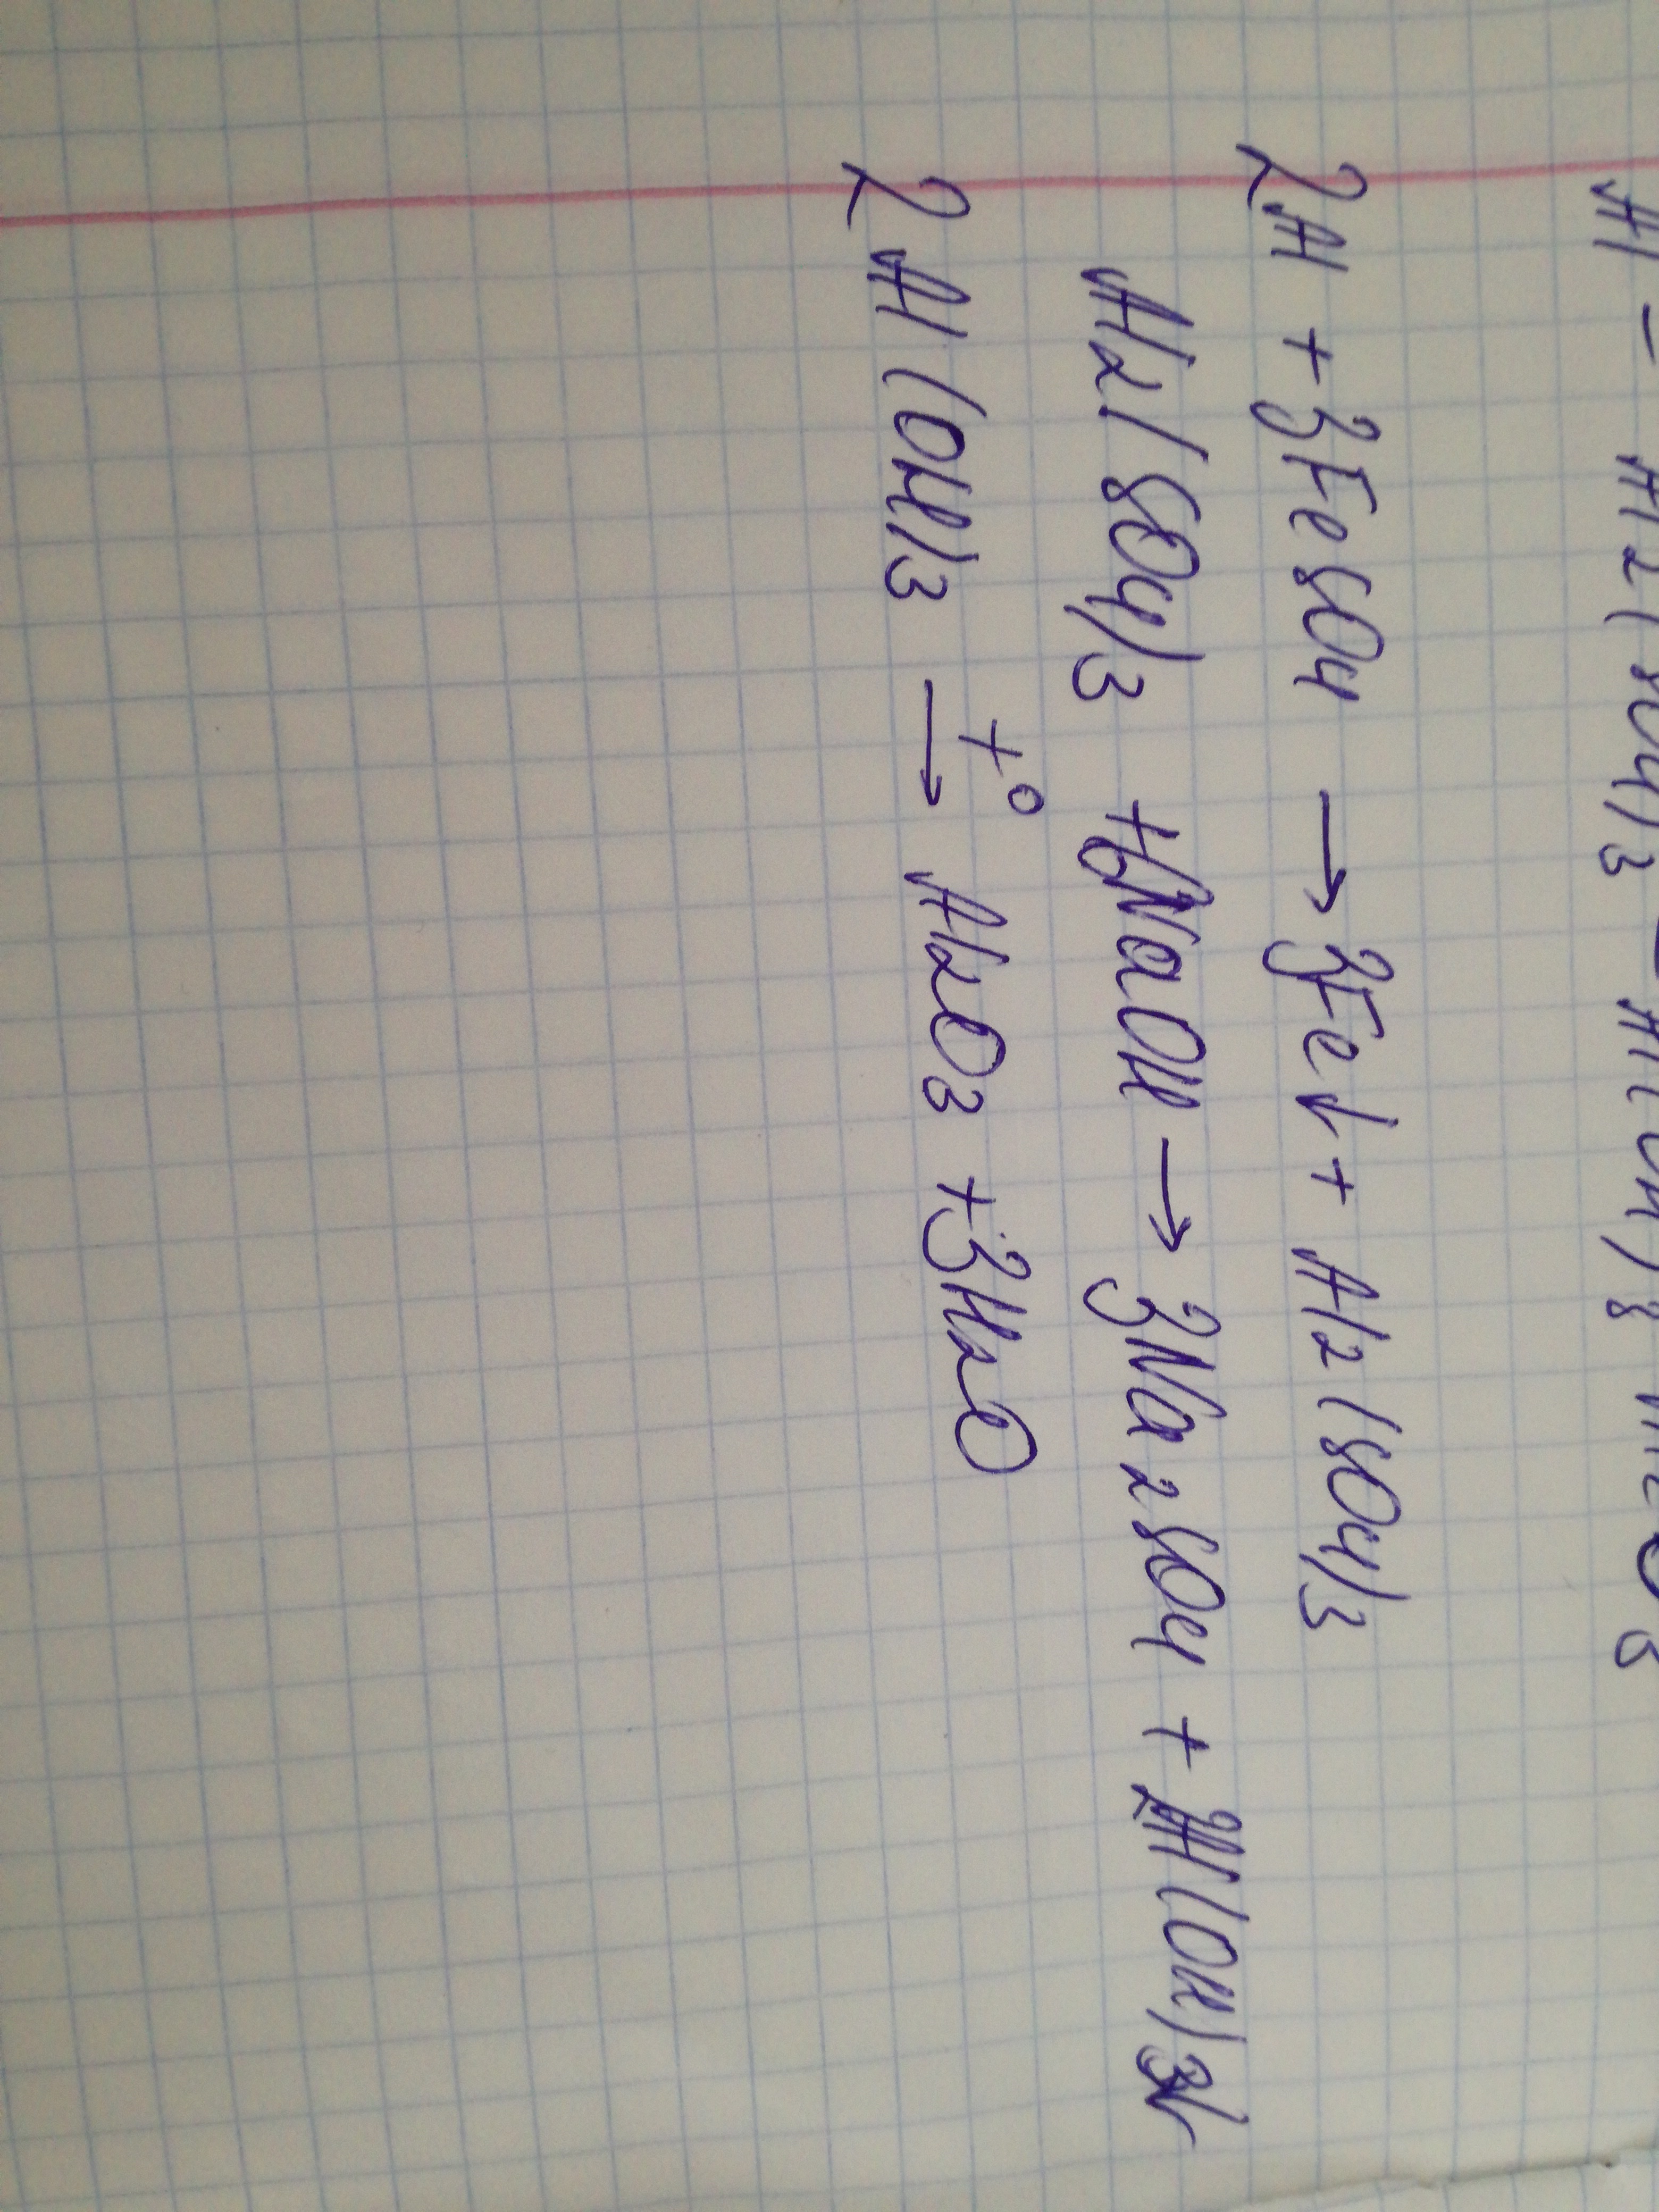 Al – Al2(SO4)3 – Al(OH)3
2Al + 3FeSO4 → 3Fe↓ + Al2(SO4)3
Al2(SO4)3 + 6NaOH → 3Na2SO4 + 2Al(OH)3↓
2Al(OH)3 t° → Al2O3 + 3H2O